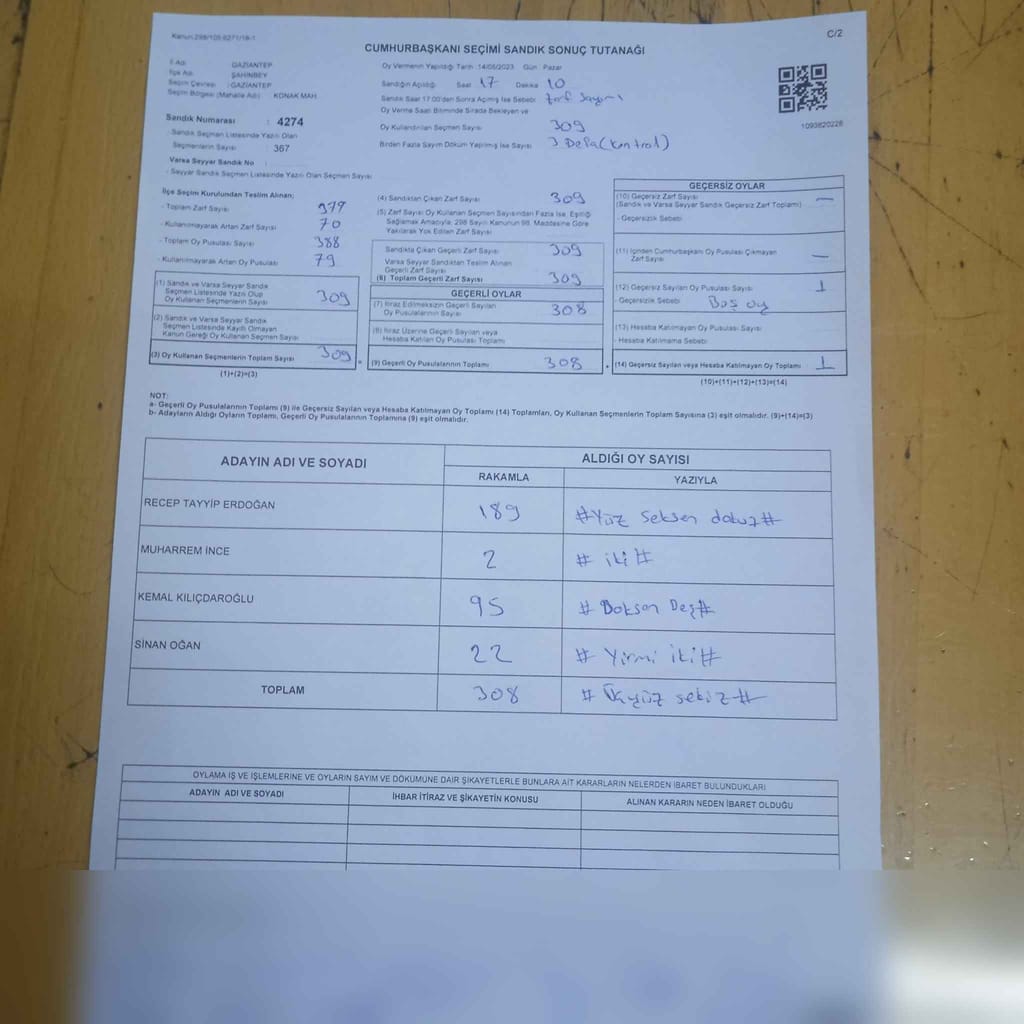 Kanun 298/105-6271/16-1
C/2
CUMHURBAŞKANI SEÇİMİ SANDIK SONUÇ TUTANAĞI
İl Adı : GAZİANTEP
İlçe Adı : ŞAHİNBEY
Seçim Çevresi : GAZİANTEP
Seçim Bölgesi (Mahalle Adı) : KONAK MAH.
Oy Vermenin Yapıldığı Tarih :14/05/2023 Gün : Pazar
Sandığın Açıldığı Saat 17 Dakika 10
Sandık Saat 17:00'den Sonra Açılmış İse Sebebi: Zarf Sayımı
Oy Verme Saati Bitiminde Sırada Bekleyen ve
Oy Kullandırılan Seçmen Sayısı 309
Birden Fazla Sayım Döküm Yapılmış İse Sayısı 3 Defa (Kontrol)
1093820228
Sandık Numarası : 4274
- Sandık Seçmen Listesinde Yazılı Olan
Seçmenlerin Sayısı : 367
Varsa Seyyar Sandık No :
- Seyyar Sandık Seçmen Listesinde Yazılı Olan Seçmen Sayısı
İlçe Seçim Kurulundan Teslim Alınan;
- Toplam Zarf Sayısı 379
- Kullanılmayarak Artan Zarf Sayısı 70
- Toplam Oy Pusulası Sayısı 388
- Kullanılmayarak Artan Oy Pusulası 79
(1) Sandık ve Varsa Seyyar Sandık
Seçmen Listesinde Yazılı Olup
Oy Kullanan Seçmenlerin Sayısı 309
(2) Sandık ve Varsa Seyyar Sandık
Seçmen Listesinde Kayıtlı Olmayan
Kanun Gereği Oy Kullanan Seçmen Sayısı
(3) Oy Kullanan Seçmenlerin Toplam Sayısı 309
(1)+(2)=(3)
(4) Sandıktan Çıkan Zarf Sayısı 309
(5) Zarf Sayısı Oy Kullanan Seçmen Sayısından Fazla İse, Eşitliği
Sağlamak Amacıyla, 298 Sayılı Kanunun 98. Maddesine Göre
Yakılarak Yok Edilen Zarf Sayısı
Sandıkta Çıkan Geçerli Zarf Sayısı 309
Varsa Seyyar Sandıktan Teslim Alınan
Geçerli Zarf Sayısı
(6) Toplam Geçerli Zarf Sayısı 309
GEÇERLİ OYLAR
(7) İtiraz Edilmeksizin Geçerli Sayılan
Oy Pusulalarının Sayısı 308
(8) İtiraz Üzerine Geçerli Sayılan veya
Hesaba Katılan Oy Pusulası Toplamı
(9) Geçerli Oy Pusulalarının Toplamı 308
GEÇERSİZ OYLAR
(10) Geçersiz Zarf Sayısı —
(Sandık ve Varsa Seyyar Sandık Geçersiz Zarf Toplamı)
- Geçersizlik Sebebi
(11) İçinden Cumhurbaşkanı Oy Pusulası Çıkmayan
Zarf Sayısı —
(12) Geçersiz Sayılan Oy Pusulası Sayısı 1
- Geçersizlik Sebebi Boş oy
(13) Hesaba Katılmayan Oy Pusulası Sayısı
- Hesaba Katılmama Sebebi
(14) Geçersiz Sayılan veya Hesaba Katılmayan Oy Toplamı 1
(10)+(11)+(12)+(13)=(14)
NOT:
a- Geçerli Oy Pusulalarının Toplamı (9) ile Geçersiz Sayılan veya Hesaba Katılmayan Oy Toplamı (14) Toplamları, Oy Kullanan Seçmenlerin Toplam Sayısına (3) eşit olmalıdır. (9)+(14)=(3)
b- Adayların Aldığı Oyların Toplamı, Geçerli Oy Pusulalarının Toplamına (9) eşit olmalıdır.
ADAYIN ADI VE SOYADI ALDIĞI OY SAYISI
RAKAMLA YAZIYLA
RECEP TAYYİP ERDOĞAN 189 #Yüz Seksen dokuz#
MUHARREM İNCE 2 # iki #
KEMAL KILIÇDAROĞLU 95 # Doksan Beş#
SİNAN OĞAN 22 # Yirmi iki#
TOPLAM 308 # Üçyüz sekiz#
OYLAMA İŞ VE İŞLEMLERİNE VE OYLARIN SAYIM VE DÖKÜMÜNE DAİR ŞİKAYETLERLE BUNLARA AİT KARARLARIN NELERDEN İBARET BULUNDUKLARI
ADAYIN ADI VE SOYADI İHBAR İTİRAZ VE ŞİKAYETİN KONUSU ALINAN KARARIN NEDEN İBARET OLDUĞU